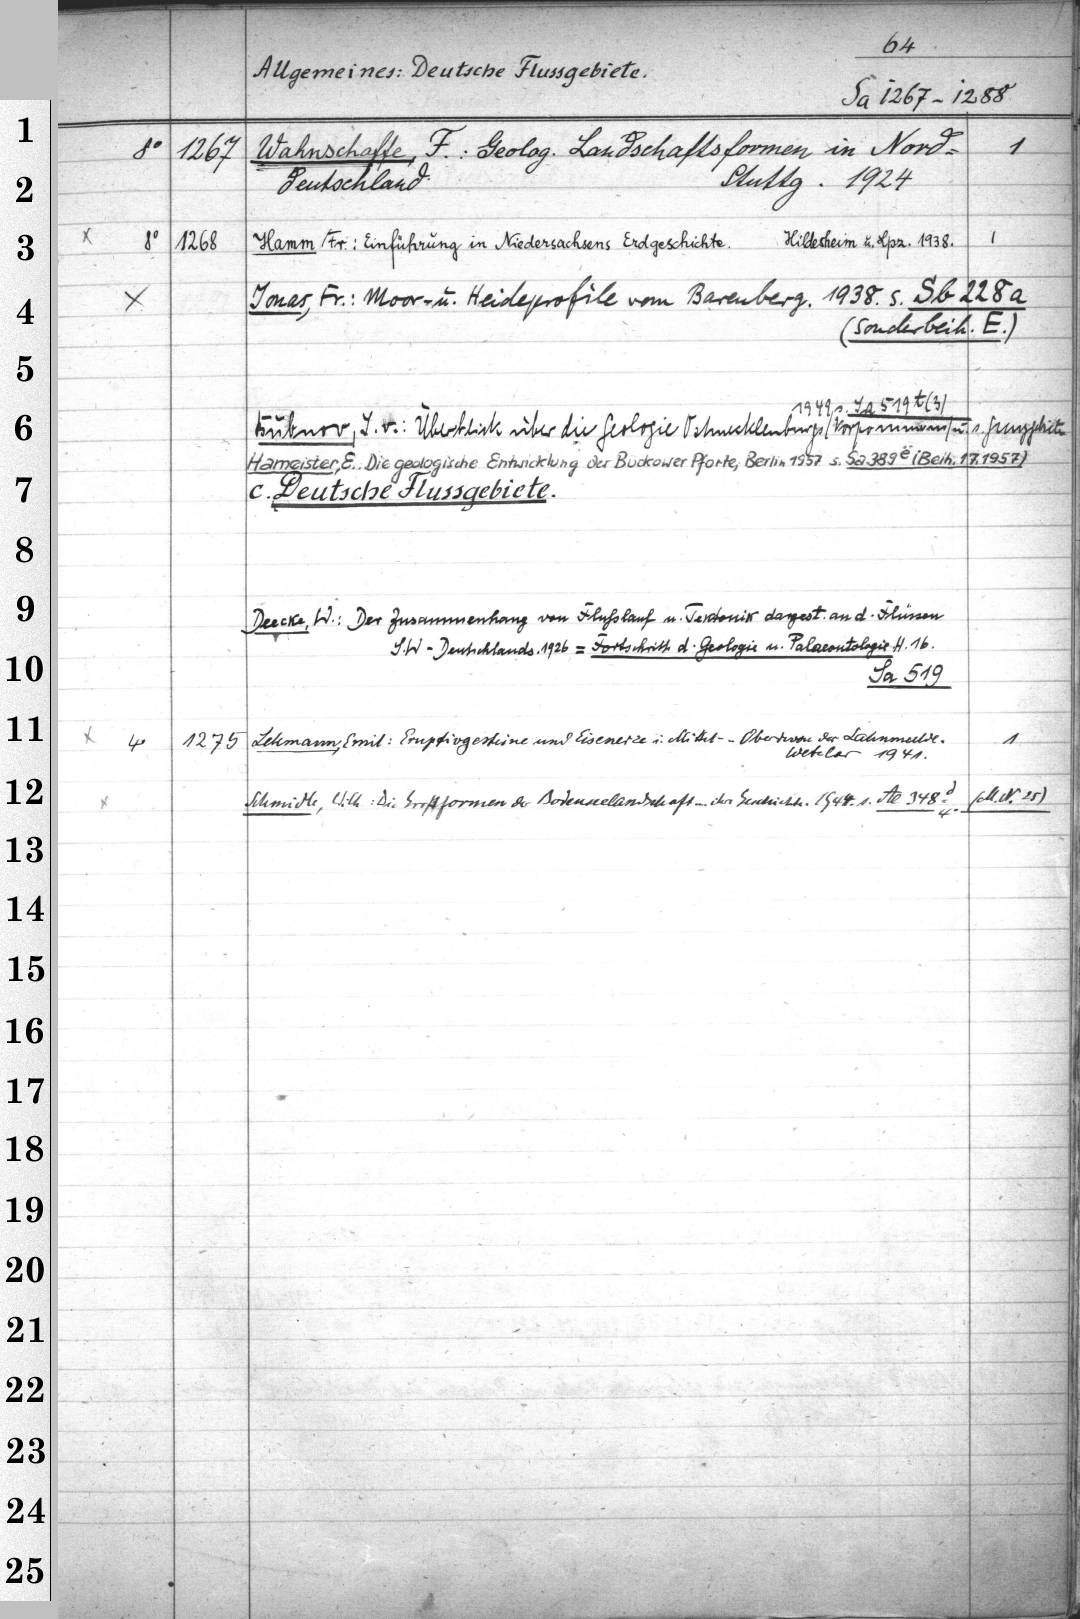 64
Allgemeines: Deutsche Flussgebiete.
Sa 1267 - 1288
1
8° 1267 Wahnschaffe, F.: Geolog. Landschaftsformen in Nord= 1
2
Deutschland Stuttg. 1924
3
x 8° 1268 Hamm, Fr.: Einführung in Niedersachsens Erdgeschichte. Hildesheim u. Lpz. 1938. 1
4
x Jonas, Fr.: Moor- u. Heideprofile vom Barenberg. 1938. s. Sb 228a
(Sonderbeih. E.)
5
1949 s. Sa 519 t (3)
6
Bubnov, S. v.: Überblick über die Geologie Ostmecklenburgs (Vorpommern) u. s. Grenzgebiete
Hameister, E.. Die geologische Entwicklung der Buckower Pforte, Berlin 1957 s. Sa 389 e (Beih. 17.1957)
7
c. Deutsche Flussgebiete.
8
9
Deecke, W.: Der Zusammenhang von Flußlauf u. Tektonik dargest. an d. Flüssen
S.W - Deutschlands. 1926 = Fortschritte d. Geologie u. Palaeontologie H. 16.
10
Sa 519
11
x 4° 1275 Lehmann, Emil: Eruptivgesteine und Eisenerze i. Mittel- - Oberdevon der Lahnmulde. 1
Wetzlar 1941.
12
x Schmidle, Wilh.: Die Großformen der Bodenseelandschaft u. ihre Geschichte. 1944. s. Ae 348 d 4° (M.N. 25)
13
14
15
16
17
18
19
20
21
22
23
24
25